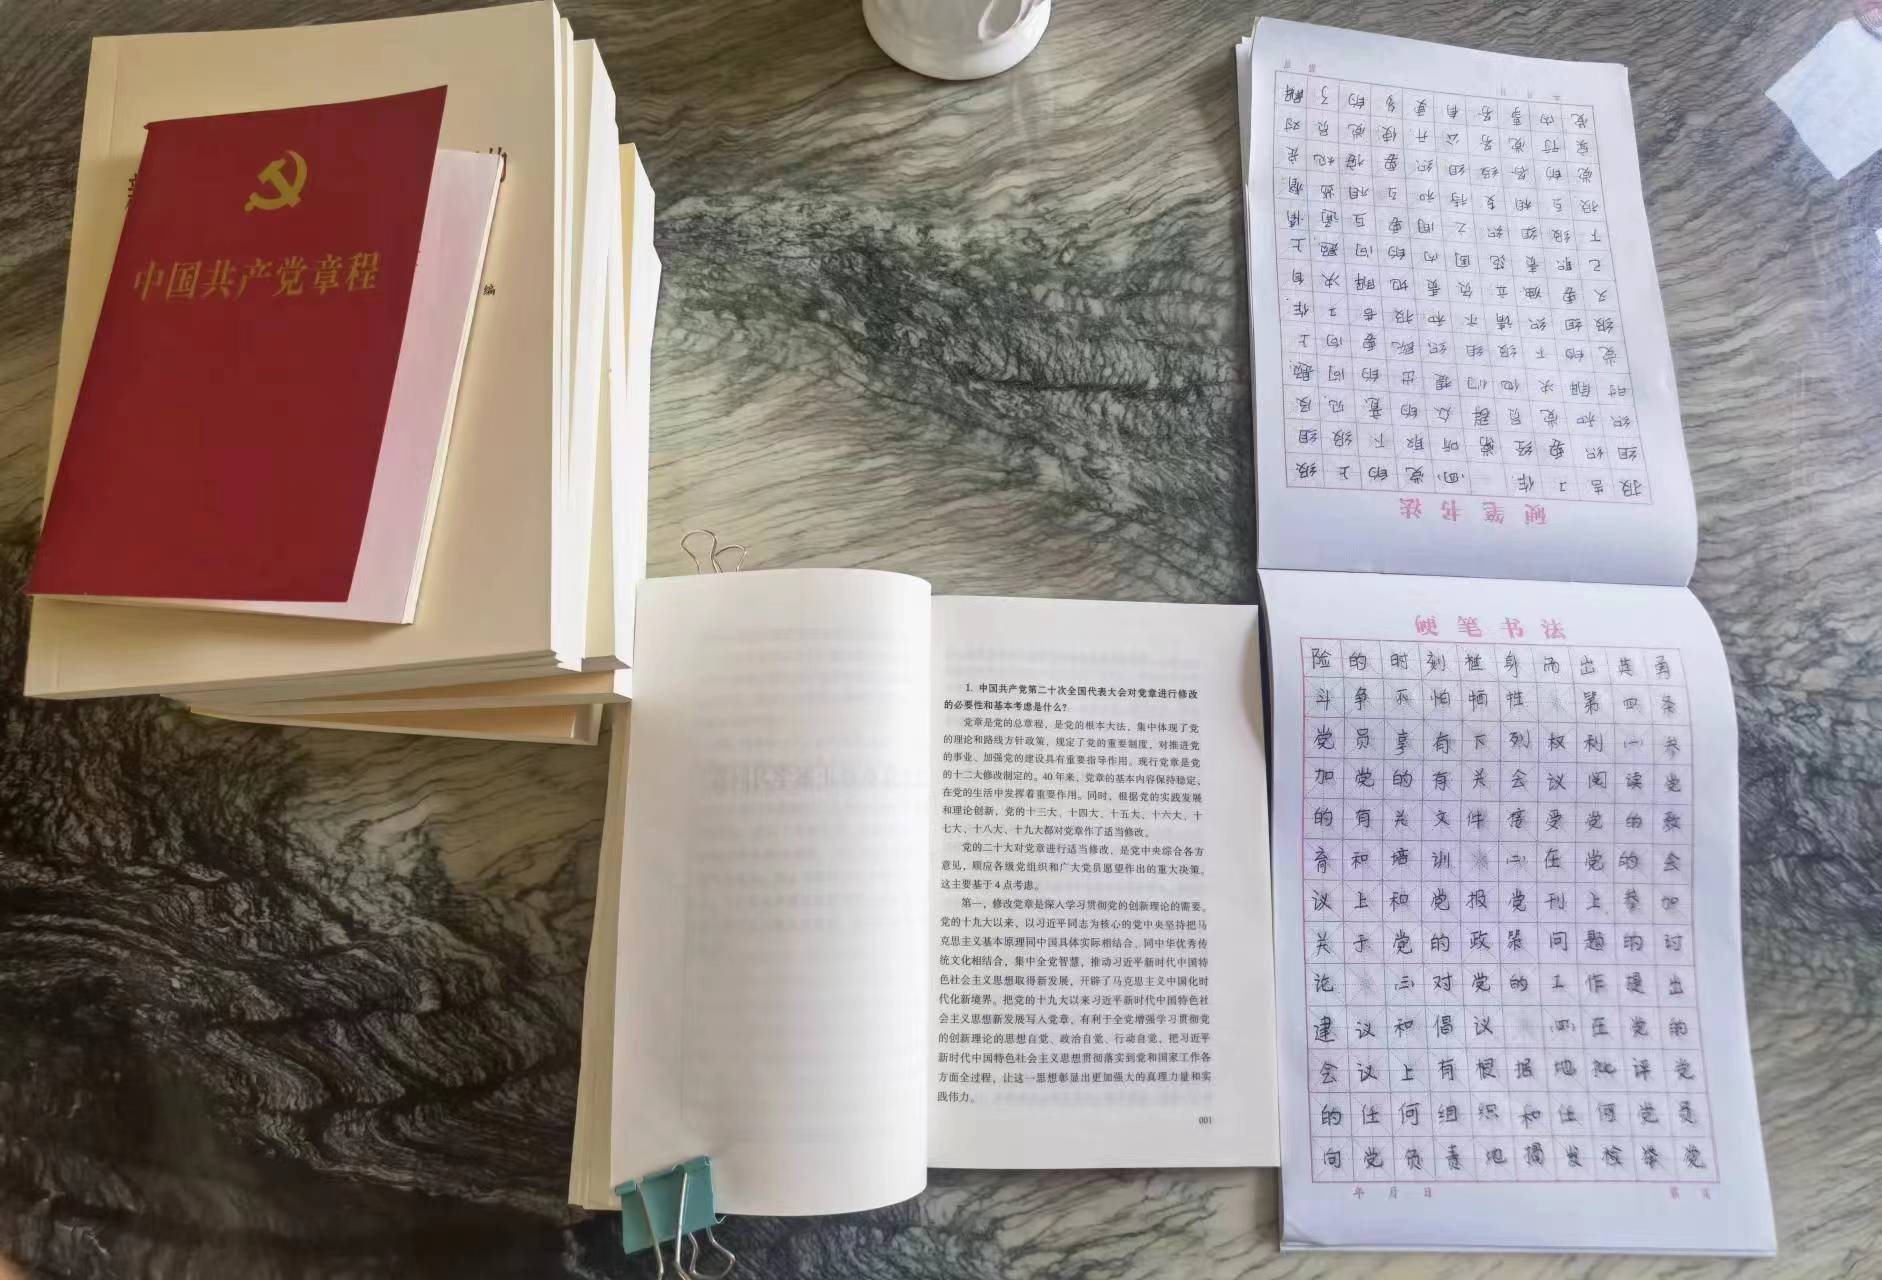 中国共产党章程
编
1. 中国共产党第二十次全国代表大会对党章进行修改
的必要性和基本考虑是什么?
党章是党的总章程,是党的根本大法,集中体现了党
的理论和路线方针政策,规定了党的重要制度,对推进党
的事业、加强党的建设具有重要指导作用。现行党章是党
的十二大修改制定的。40年来,党章的基本内容保持稳定,
在党的生活中发挥着重要作用。同时,根据党的实践发展
和理论创新,党的十三大、十四大、十五大、十六大、十
七大、十八大、十九大都对党章作了适当修改。
党的二十大对党章进行适当修改,是党中央综合各方
意见,顺应各级党组织和广大党员愿望作出的重大决策。
这主要基于4点考虑。
第一,修改党章是深入学习贯彻党的创新理论的需要。
党的十九大以来,以习近平同志为核心的党中央坚持把马
克思主义基本原理同中国具体实际相结合、同中华优秀传
统文化相结合,集中全党智慧,推动习近平新时代中国特
色社会主义思想取得新发展,开辟了马克思主义中国化时
代化新境界。把党的十九大以来习近平新时代中国特色社
会主义思想新发展写入党章,有利于全党增强学习贯彻党
的创新理论的思想自觉、政治自觉、行动自觉,把习近平
新时代中国特色社会主义思想贯彻落实到党和国家工作各
方面全过程,让这一思想彰显出更加强大的真理力量和实
践伟力。
001
硬笔书法
报告工作 (四)党的上级
组织要经常听取下级组
织和党员群众的意见及
时解决他们提出的问题.
党的下级组织既要向上
级组织请示和报告工作
又要独立负责地解决自
己职责范围内的问题.上
下级组织之间要互通情
报互相支持和互相监督.
党的各级组织要按规定
实行党务公开使党员对
党内事务有更多的了解
硬笔书法
险的时刻挺身而出英勇
斗争不怕牺牲 第四条
党员享有下列权利(一)参
加党的有关会议阅读党
的有关文件接受党的教
育和培训 (二)在党的会
议上和党报党刊上参加
关于党的政策问题的讨
论 (三)对党的工作提出
建议和倡议 (四)在党的
会议上有根据地批评党
的任何组织和任何党员
向党负责地揭发检举党
年 月 日
第 页